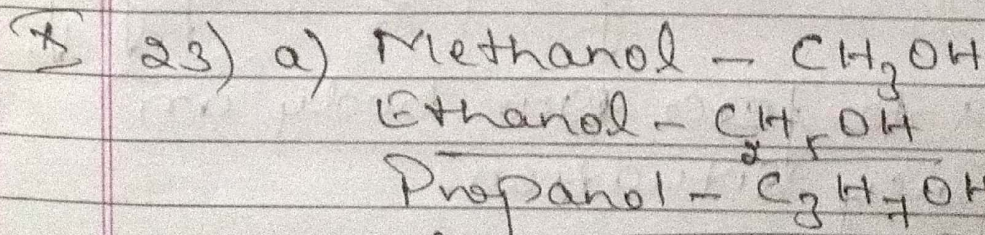 23) a) Methanol - CH₃OH
Ethanol - C₂H₅OH
Propanol - C₃H₇OH